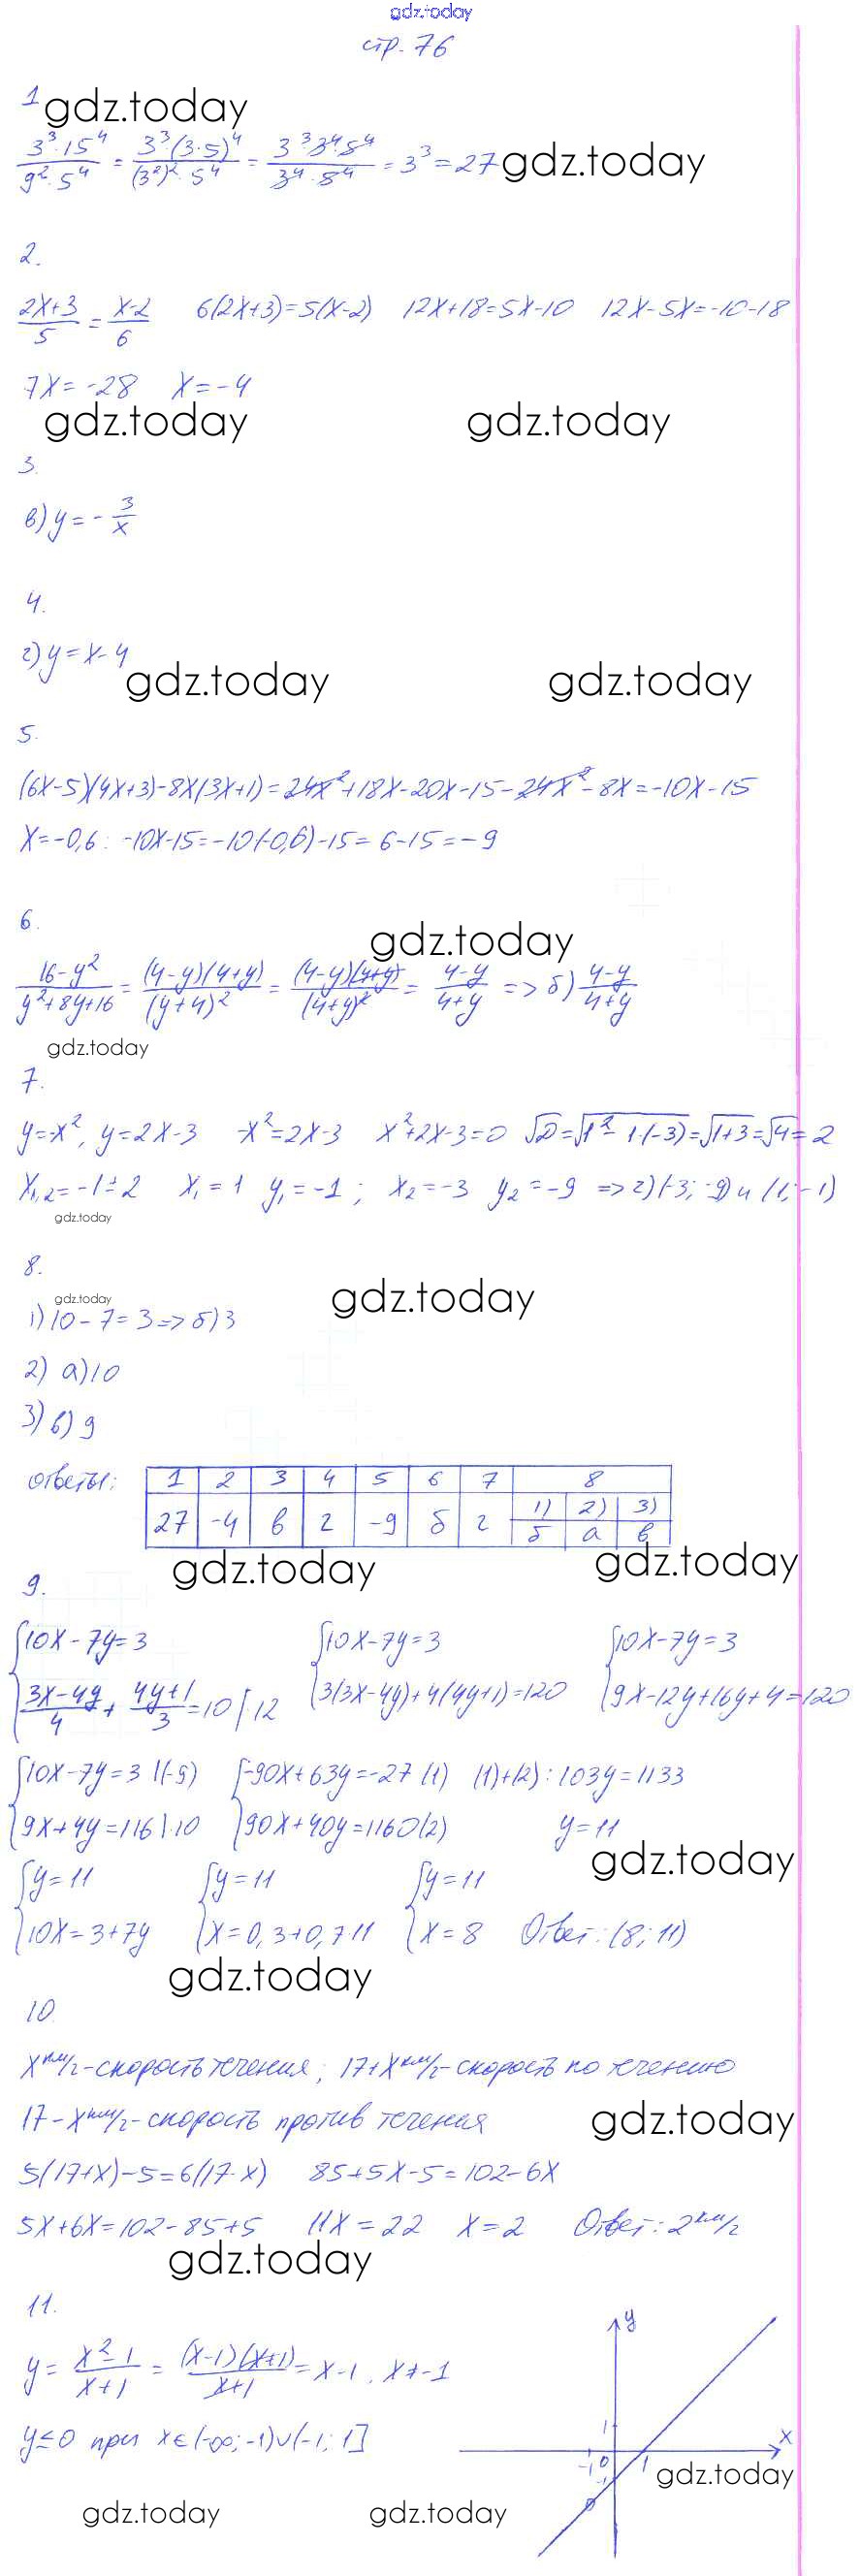 gdz.today
стр. 76
1 gdz.today
3³·15⁴/9²·5⁴ = 3³(3·5)⁴/(3²)²·5⁴ = 3³3⁴5⁴/3⁴·5⁴ = 3³ = 27 gdz.today
2.
2x+3/5 = x-2/6 6(2x+3)=5(x-2) 12x+18=5x-10 12x-5x=-10-18
7x=-28 x=-4
gdz.today gdz.today
3.
в) y = -3/x
4.
г) y=x-4
gdz.today gdz.today
5.
(6x-5)(4x+3)-8x(3x+1)=24x²+18x-20x-15-24x²-8x=-10x-15
x=-0,6: -10x-15=-10(-0,6)-15=6-15=-9
6.
gdz.today
16-y²/y²+8y+16 = (4-y)(4+y)/(y+4)² = (4-y)(4+y)/(4+y)² = 4-y/4+y => б) 4-y/4+y
gdz.today
7.
y=-x², y=2x-3 -x²=2x-3 x²+2x-3=0 √D=√1²-1·(-3)=√1+3=√4=2
x₁,₂=-1±2 x₁=1 y₁=-1; x₂=-3 y₂=-9 => г) (-3;-9) и (1;-1)
gdz.today
8.
gdz.today gdz.today
1) 10-7=3 => б) 3
2) а) 10
3) в) 9
ответы: 1 2 3 4 5 6 7 8
27 -4 в г -9 б г 1) 2) 3)
б а в
gdz.today gdz.today
9.
{10x-7y=3 {10x-7y=3 {10x-7y=3
{3x-4y/4 + 4y+1/3 = 10 |·12 {3(3x-4y)+4(4y+1)=120 {9x-12y+16y+4=120
{10x-7y=3 |(-9) {-90x+63y=-27 (1) (1)+(2): 103y=1133
{9x+4y=116 |·10 {90x+40y=1160 (2) y=11
gdz.today
{y=11 {y=11 {y=11
{10x=3+7y {x=0,3+0,7·11 {x=8 Ответ: (8; 11)
gdz.today
10.
x км/г - скорость течения; 17+x км/г - скорость по течению
17-x км/г - скорость против течения gdz.today
5(17+x)-5=6(17-x) 85+5x-5=102-6x
5x+6x=102-85+5 11x=22 x=2 Ответ: 2 км/г
gdz.today
11.
y = x²-1/x+1 = (x-1)(x+1)/x+1 = x-1, x≠-1
y≤0 при x∈(-∞;-1)∪(-1;1]
y
1
x
-1 0 1
-1
gdz.today
gdz.today gdz.today